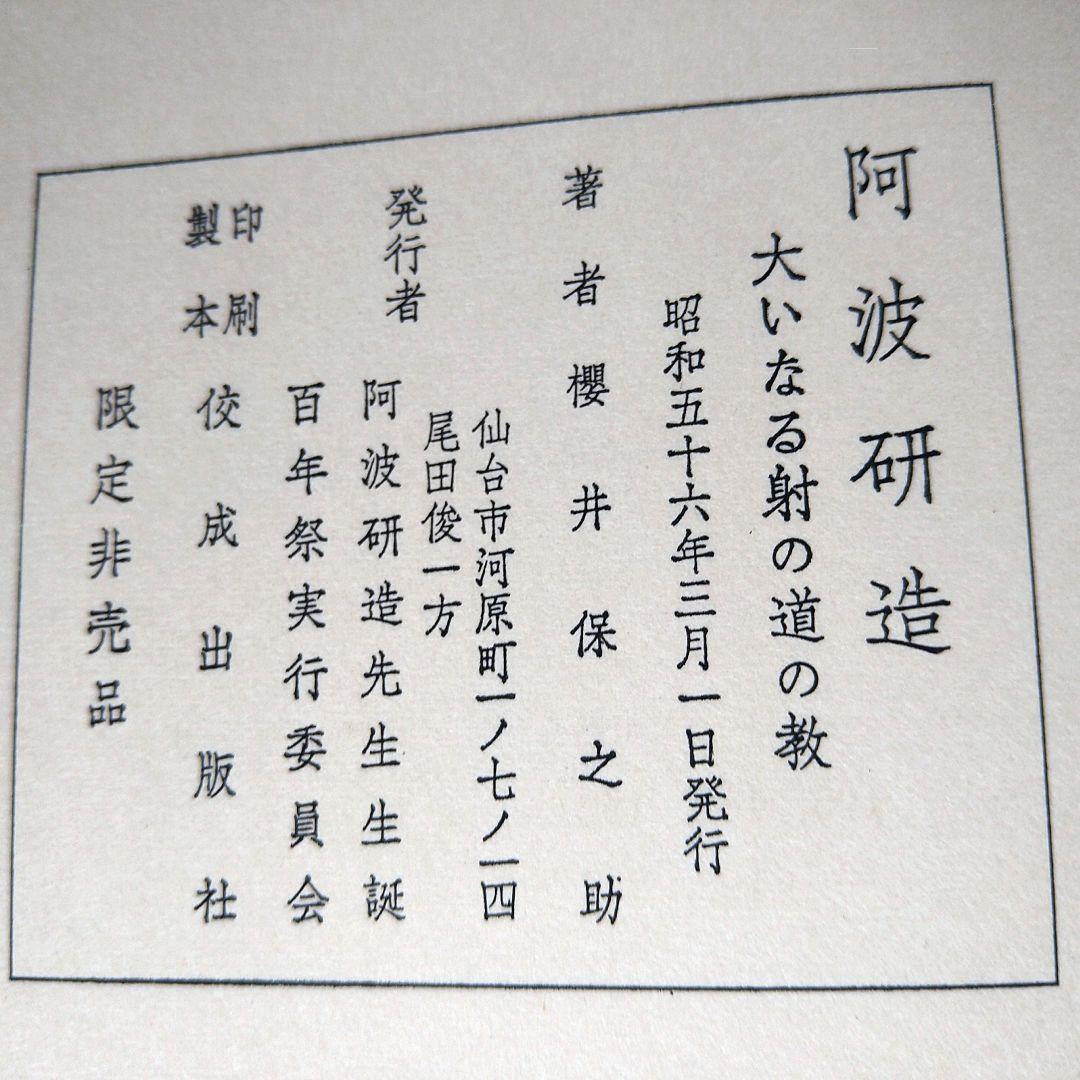 阿波研造
大いなる射の道の教
昭和五十六年三月一日発行
著者 櫻井保之助
仙台市河原町一ノ七ノ一四
尾田俊一方
発行者 阿波研造先生生誕
百年祭実行委員会
印刷
製本 佼成出版社
限定非売品